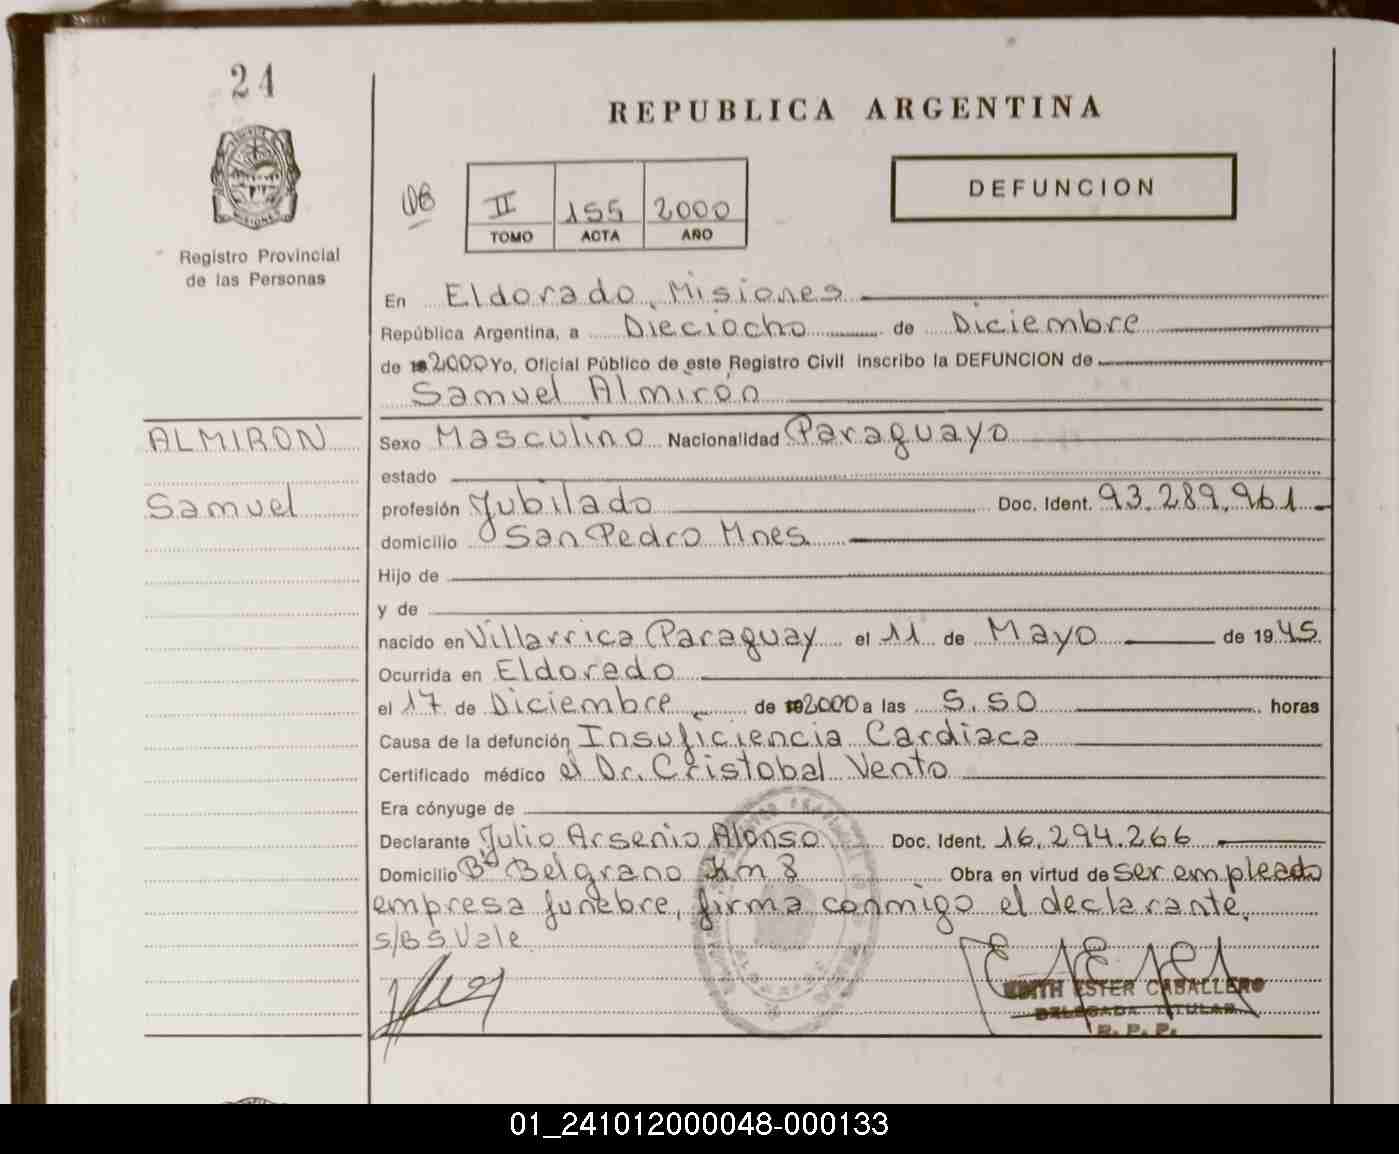 24
REPUBLICA ARGENTINA
DEFUNCION
II 155 2000
TOMO ACTA AÑO
Registro Provincial
de las Personas
En Eldorado, Misiones
República Argentina, a Dieciocho de Diciembre
de 2000 Yo, Oficial Público de este Registro Civil inscribo la DEFUNCION de
Samuel Almirón
ALMIRON
Samuel
Sexo Masculino Nacionalidad Paraguayo
estado
profesión Jubilado Doc. Ident. 93.289.961
domicilio San Pedro Mnes
Hijo de
y de
nacido en Villarrica Paraguay el 11 de Mayo de 1945
Ocurrida en Eldoredo
el 17 de Diciembre de 2000 a las 5.50 horas
Causa de la defunción Insuficiencia Cardiaca
Certificado médico el Dr. Cristobal Vento
Era cónyuge de
Declarante Julio Arsenio Alonso Doc. Ident. 16.294.266
Domicilio Bº Belgrano Km 8 Obra en virtud de ser empleado
empresa funebre, firma conmigo el declarante.
S/B 5 Vale
EDITH ESTER CABALLERO
DELEGADA TITULAR
R. P. P.
01_241012000048-000133